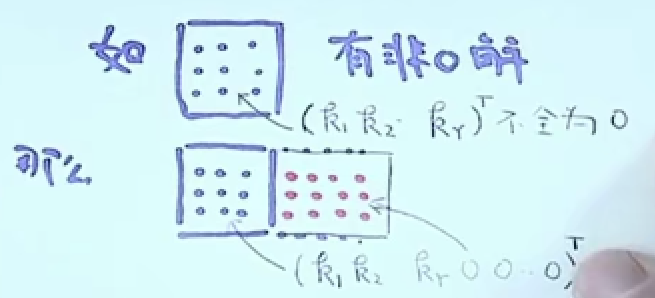 如 有非0解
(k₁ k₂ kᵣ)ᵀ不全为0
那么
(k₁ k₂ kᵣ 0 0 ·· 0)ᵀ